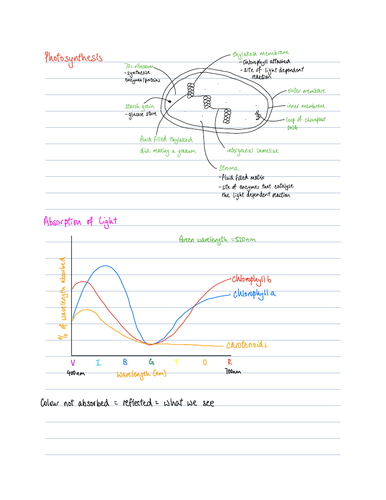 Photosynthesis
thylakoid membrane
- Chlorophyll attached
- site of light dependent
reaction
70s ribosome
- synthesise
enzymes/proteins
outer membrane
inner membrane
Starch grain
- glucose store
loop of chloroplast
DNA
fluid filled thylakoid
disc making a granum
intergranal lamellae
Stroma
- Fluid filled matrix
- site of enzymes that catalyse
the light dependent reaction
Absorption of Light
Green wavelength = 520nm
% of wavelength absorbed
chlorophyll b
chlorophyll a
carotenoids
V I B G Y O R
400nm
wavelength (nm)
700nm
Colour not absorbed = reflected = what we see